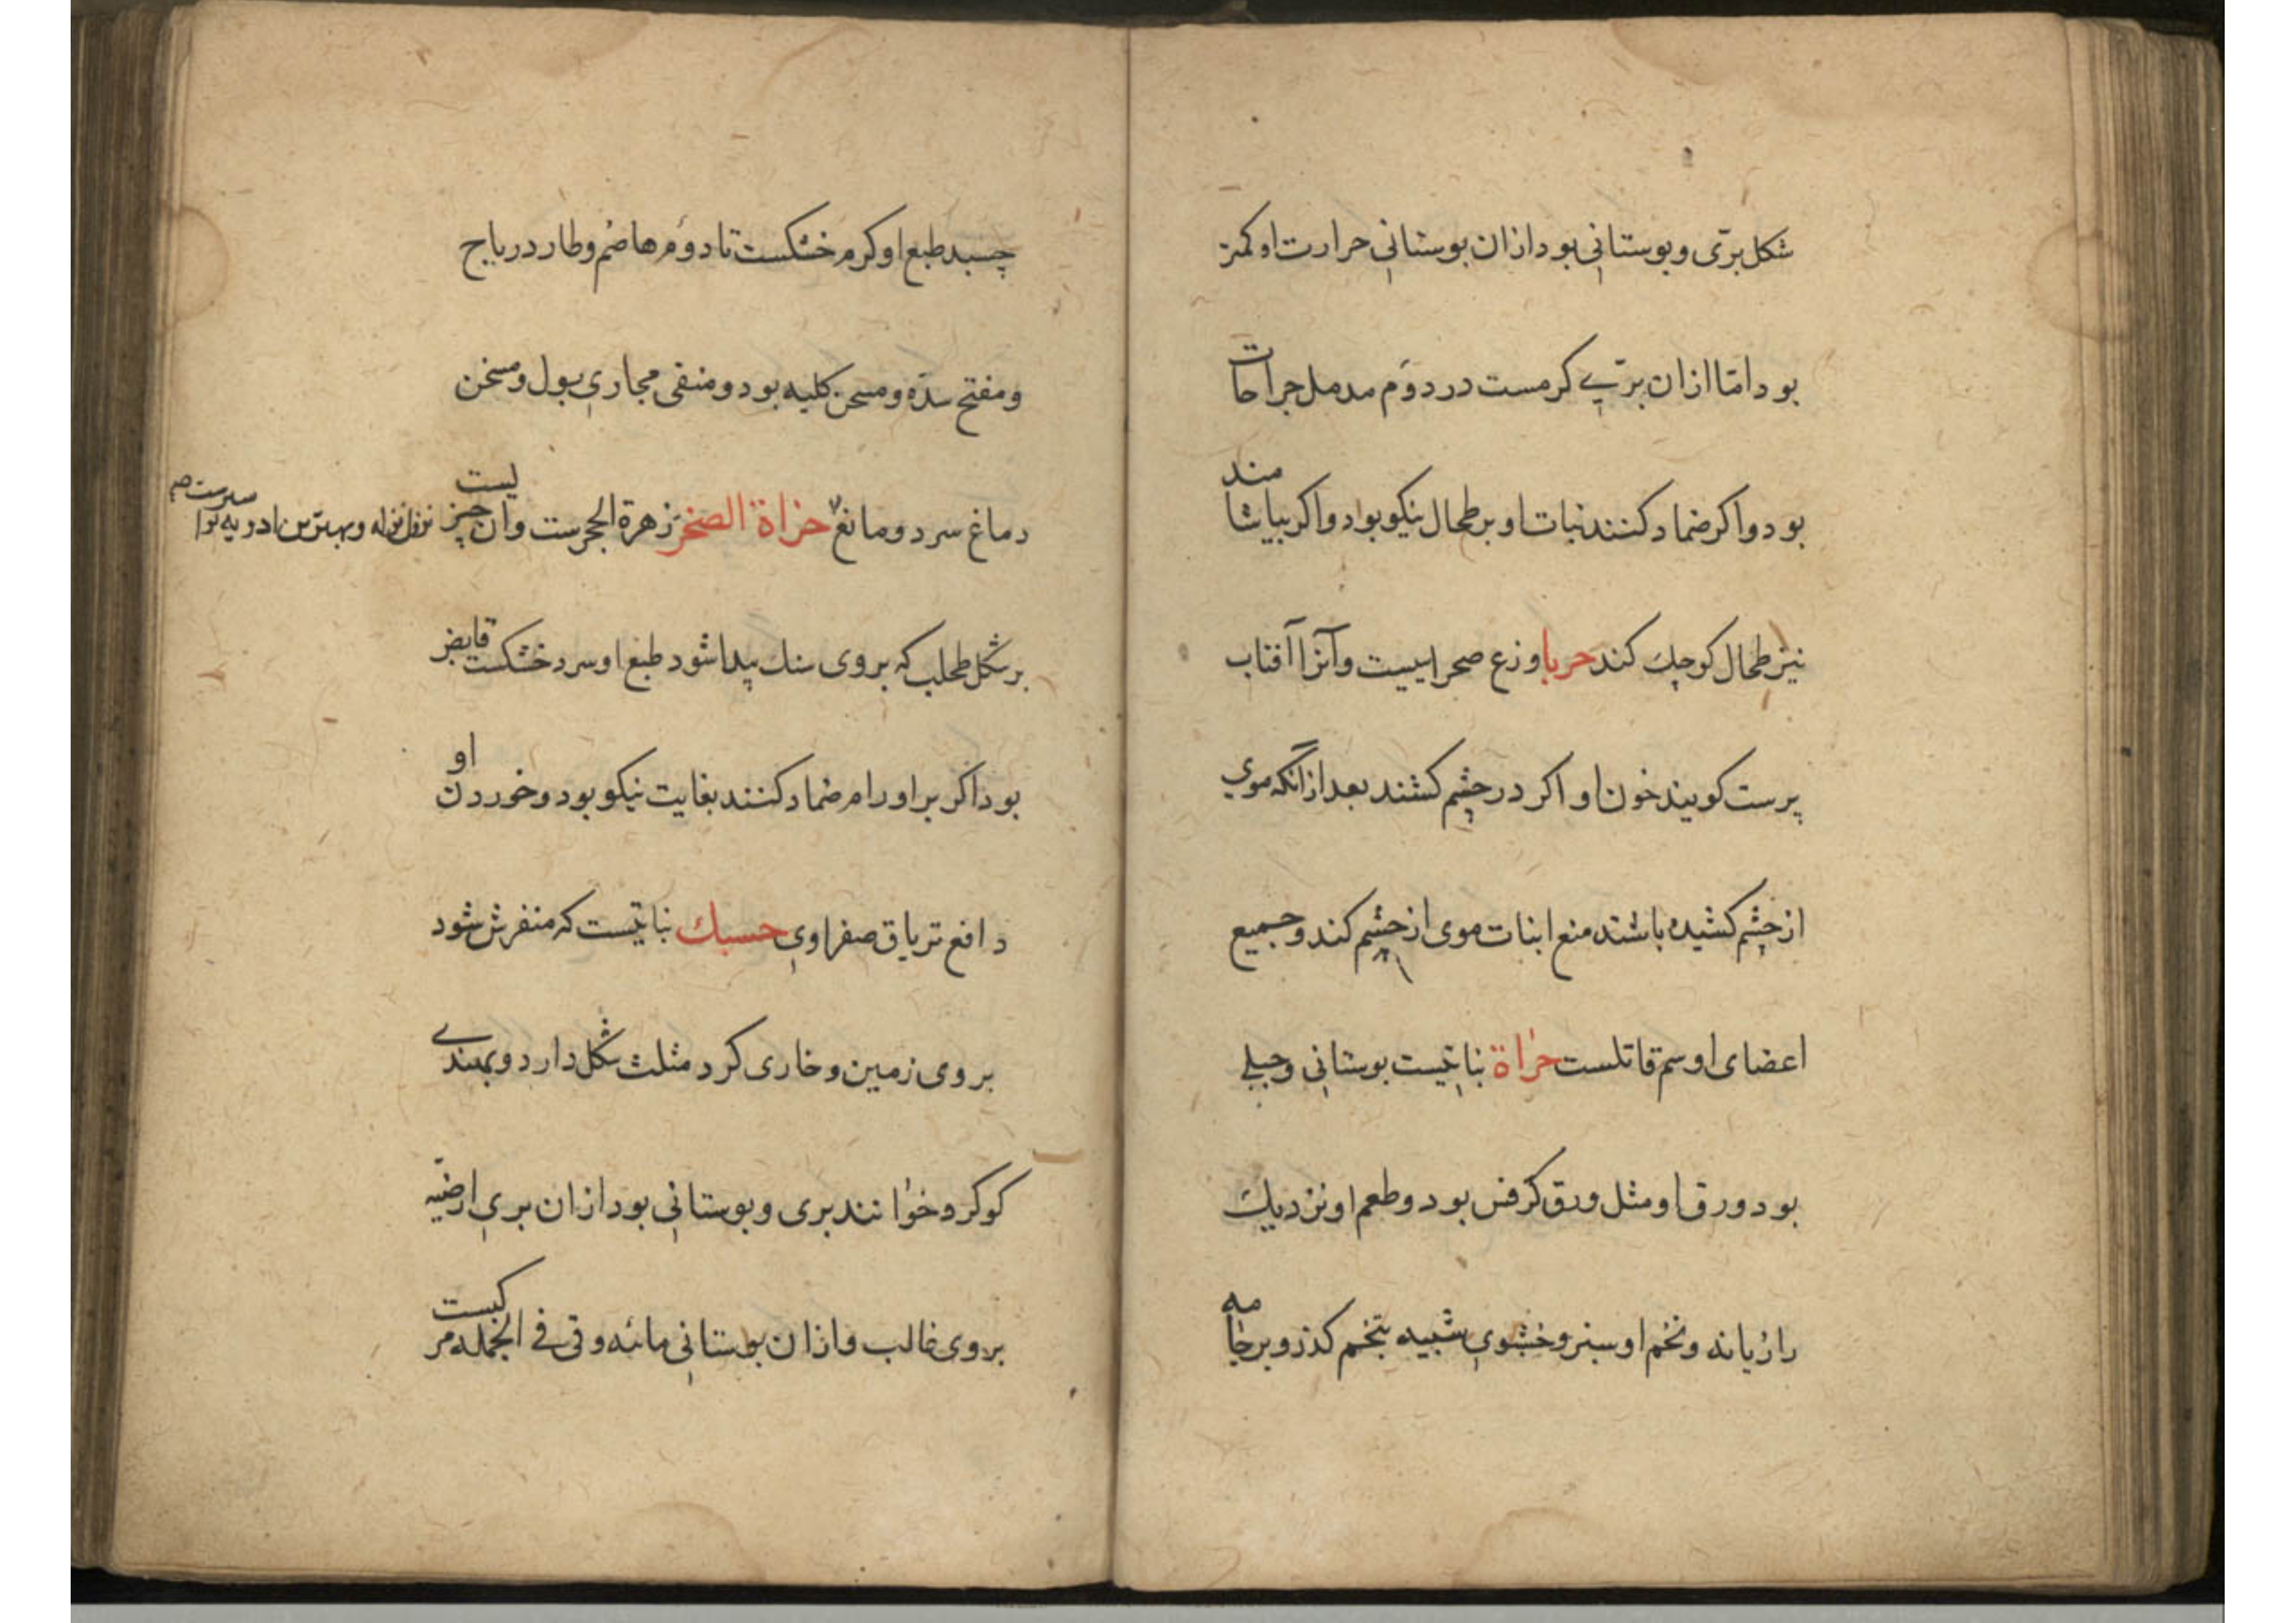 شکل برّی و بوستانی بود ازان بوستانی حرارت او کمتر
بود امّا ازان برّی کرمست در دوّم مدمل جراحات
بود و اکر ضماد کنند نبات او بر طحال نیکو بود و اکر بیاشامند
نیز طحال کوچک کند حربا وزغ صحراییست و آنرا آفتاب
پرست کویند خون او اکر در چشم کشند بعد ازانکه موی
از چشم کشیده باشند منع انبات موی از چشم کند و جمیع
اعضای او سم قاتلست حزاة نباتیست بوستانی و جبلی
بود ورق او مثل ورق کرفس بود و طعم او نزدیک
رازیانه و تخم او سبز و خشوی شبیه بتخم کذر و بر جامه
چسبد طبع او کرم خشکست تا دوّم هاضم و طارد ریاح
و مفتح سدّه و مسخن کلیه بود و منقی مجاری بول و مسخن
دماغ سرد و مانع حزاة الصخر زهرة الحجرست و ان چیزیست
نزف نزله و بهترین ادویه
بر شکل طحلب که بر وی سنک پیدا شود طبع او سرد خشکست قابض
بود اکر بر اورام ضماد کنند بغایت نیکو بود و خوردن او
دافع تریاق صفراوی حسک نباتیست که منفرش شود
بر وی زمین و خاری کرد مثلث شکل دارد و بهندی
کوکرو خوانند بری و بوستانی بود ازان بری ارضیّه
بر وی غالب و ازان بوستانی مائه و قی فی الجمله مرکبست